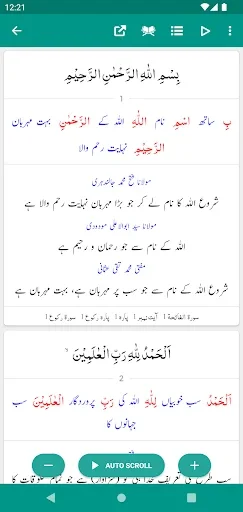 12:21
بِسْمِ اللّٰهِ الرَّحْمٰنِ الرَّحِيْمِ
1
بِ ساتھ اسْمِ نام اللّٰهِ اللہ کے الرَّحْمٰنِ بہت مہربان
الرَّحِيْمِ نہایت رحم والا
مولانا فتح محمد جالندہری
شروع اللہ کا نام لے کر جو بڑا مہربان نہایت رحم والا ہے
مولانا سید ابوالاعلیٰ مودودی
اللہ کے نام سے جو رحمان و رحیم ہے
مفتی محمد تقی عثمانی
شروع اللہ کے نام سے جو سب پر مہربان ہے، بہت مہربان ہے
سورة الفاتحة 1 آیت نمبر 1 پارہ 1 پارہ رکوع 1 سورۃ رکوع 1
اَلْحَمْدُ لِلّٰهِ رَبِّ الْعٰلَمِيْنَ
2
اَلْحَمْدُ سب خوبیاں لِلّٰهِ اللہ کی رَبِّ پروردگار الْعٰلَمِيْنَ سب
جہانوں کا
AUTO SCROLL